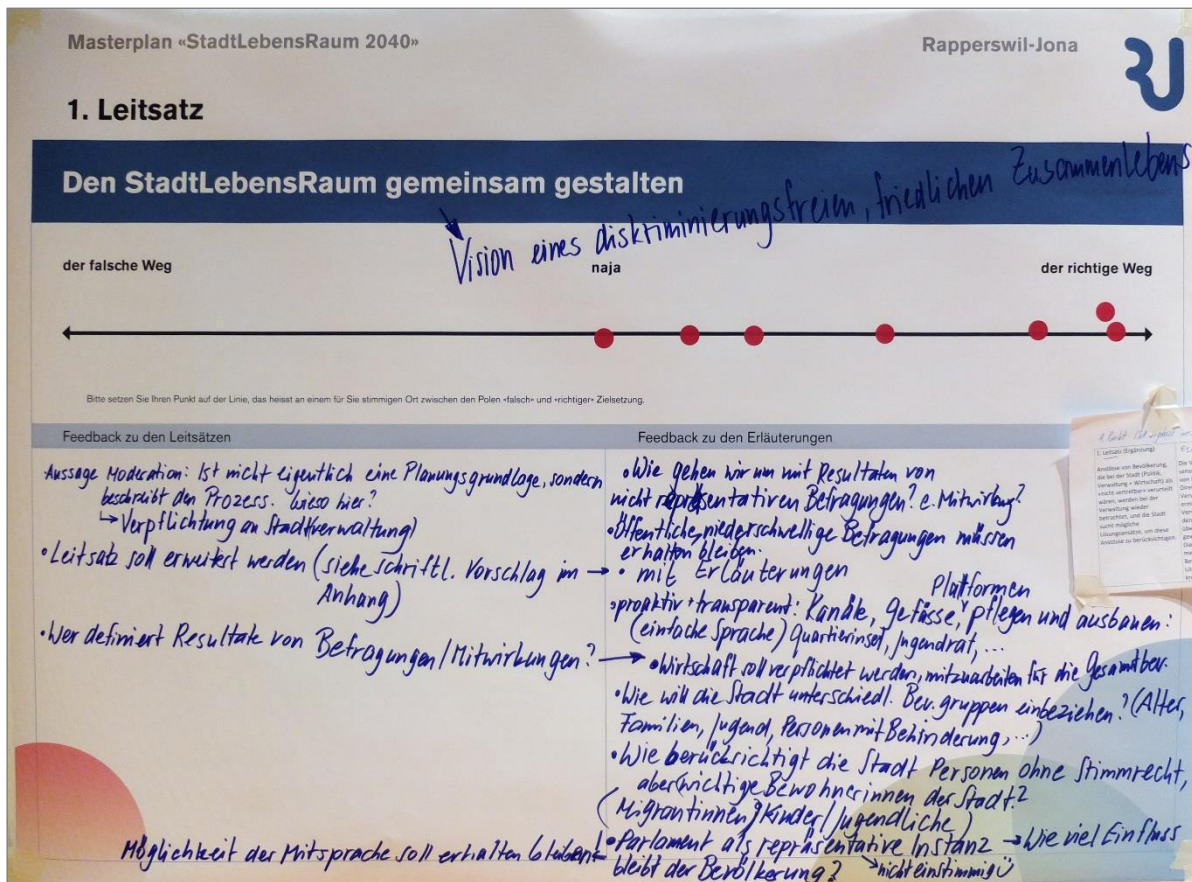 Masterplan «StadtLebensRaum 2040»
Rapperswil-Jona
RJ
1. Leitsatz
Den StadtLebensRaum gemeinsam gestalten
Vision eines diskriminierungsfreien, friedlichen Zusammenlebens
der falsche Weg
naja
der richtige Weg
Bitte setzen Sie Ihren Punkt auf der Linie, das heisst an einem für Sie stimmigen Ort zwischen den Polen «falsch» und «richtiger» Zielsetzung.
Feedback zu den Leitsätzen
Aussage Moderation: Ist nicht eigentlich eine Planungsgrundlage, sondern
beschreibt den Prozess. Wieso hier?
↳ Verpflichtung an Stadtverwaltung)
• Leitsatz soll erweitert werden (siehe schriftl. Vorschlag im →
Anhang)
• Wer definiert Resultate von Befragungen/Mitwirkungen? →
Möglichkeit der Mitsprache soll erhalten bleiben!
Feedback zu den Erläuterungen
• Wie gehen wir um mit Resultaten von
nicht repräsentativen Befragungen? e. Mitwirkung?
• Öffentliche, niederschwellige Befragungen müssen
erhalten bleiben.
• mit Erläuterungen
Plattformen
• proaktiv + transparent: Kanäle, Gefässe, pflegen und ausbauen:
(einfache Sprache) Quartierinsel, Jugendrat, ...
• Wirtschaft soll verpflichtet werden, mitzuarbeiten für die Gesamtbev.
• Wie will die Stadt unterschiedl. Bev.gruppen einbeziehen? (Alter,
Familien, Jugend, Personen mit Behinderung, ...)
• Wie berücksichtigt die Stadt Personen ohne Stimmrecht,
aber wichtige Bewohnerinnen der Stadt?
(Migrantinnen, Kinder/Jugendliche)
• Parlament als repräsentative Instanz → Wie viel Einfluss
bleibt der Bevölkerung? → nicht einstimmig ü
1. Leitsatz (Ergänzung)
Anstösse von Bevölkerung,
die bei der Stadt (Politik,
Verwaltung + Wirtschaft) als
«nicht vertretbar» verurteilt
wären, werden bei der
Verwaltung wieder
betrachtet, und die Stadt
sucht mögliche
Lösungsansätze, um diese
Anstösse zu berücksichtigen.